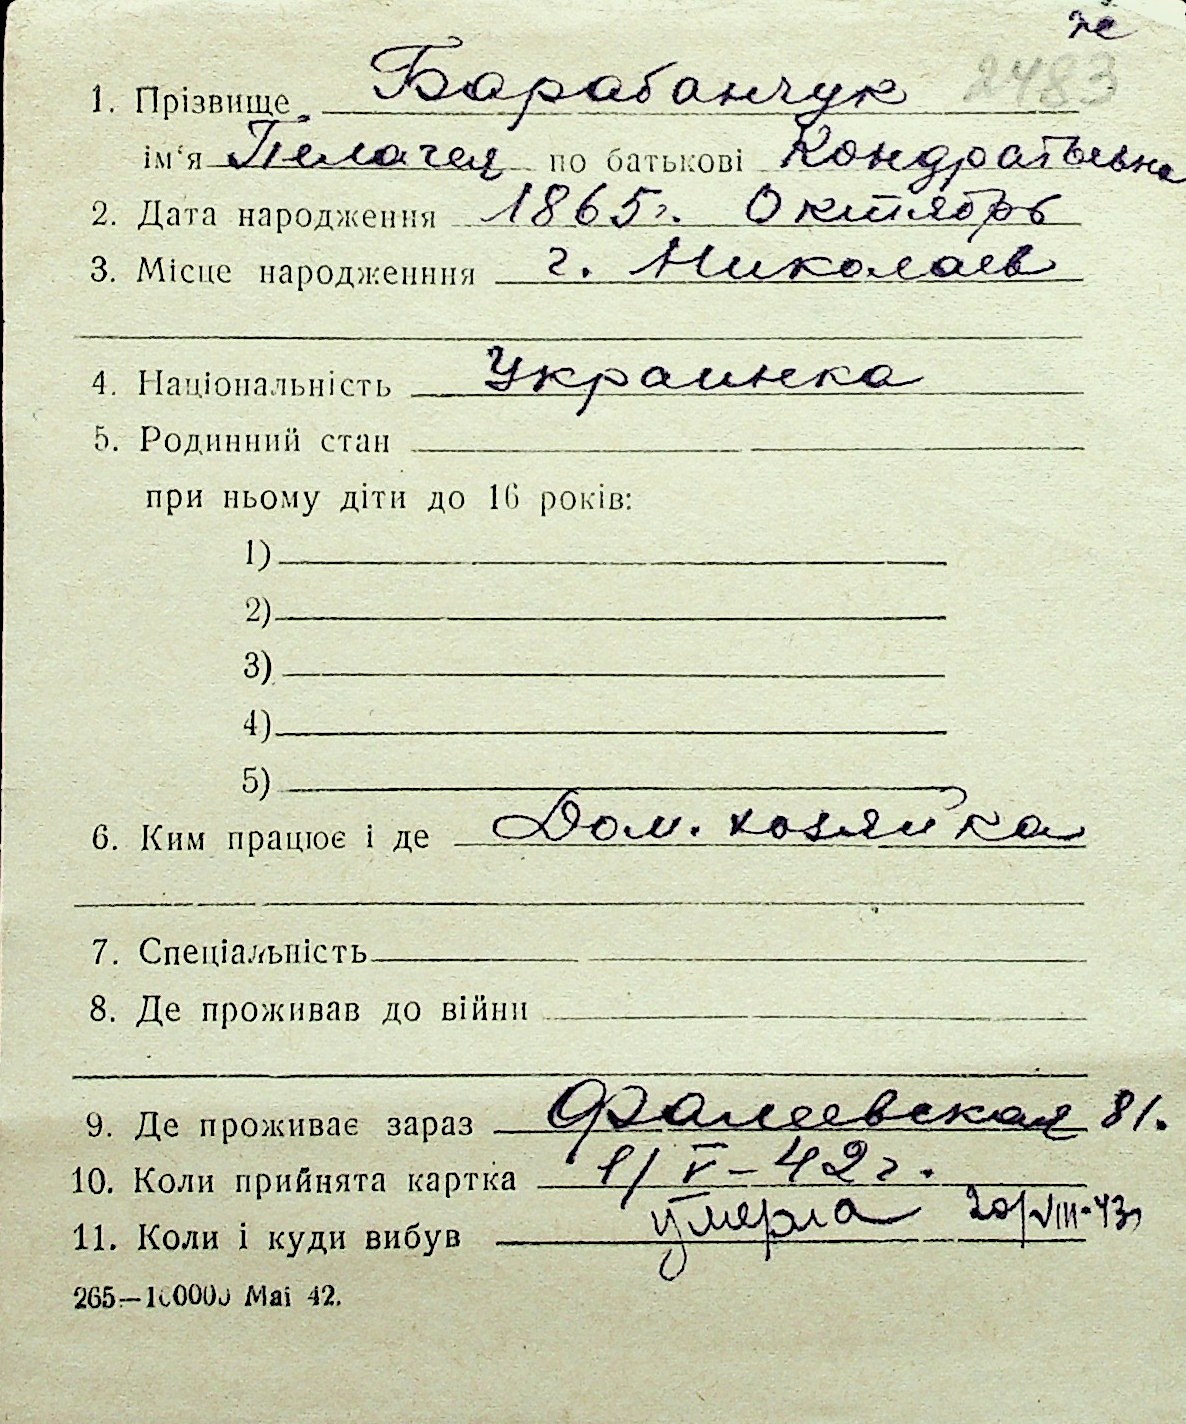 же
2483
1. Прізвище Барабанчук
ім‘я Пелагея по батькові Кондратьевна
2. Дата народження 1865 г. Октябрь
3. Місце народженння г. Николаев
4. Національність Украинка
5. Родинний стан
при ньому діти до 16 років:
1)
2)
3)
4)
5)
6. Ким працює і де Дом. хозяйка
7. Спеціальність
8. Де проживав до війни
9. Де проживає зараз Фалеевская 81.
10. Коли прийнята картка 1/V-42 г.
11. Коли і куди вибув умерла 20/VIII-43
265—100000 Mai 42.